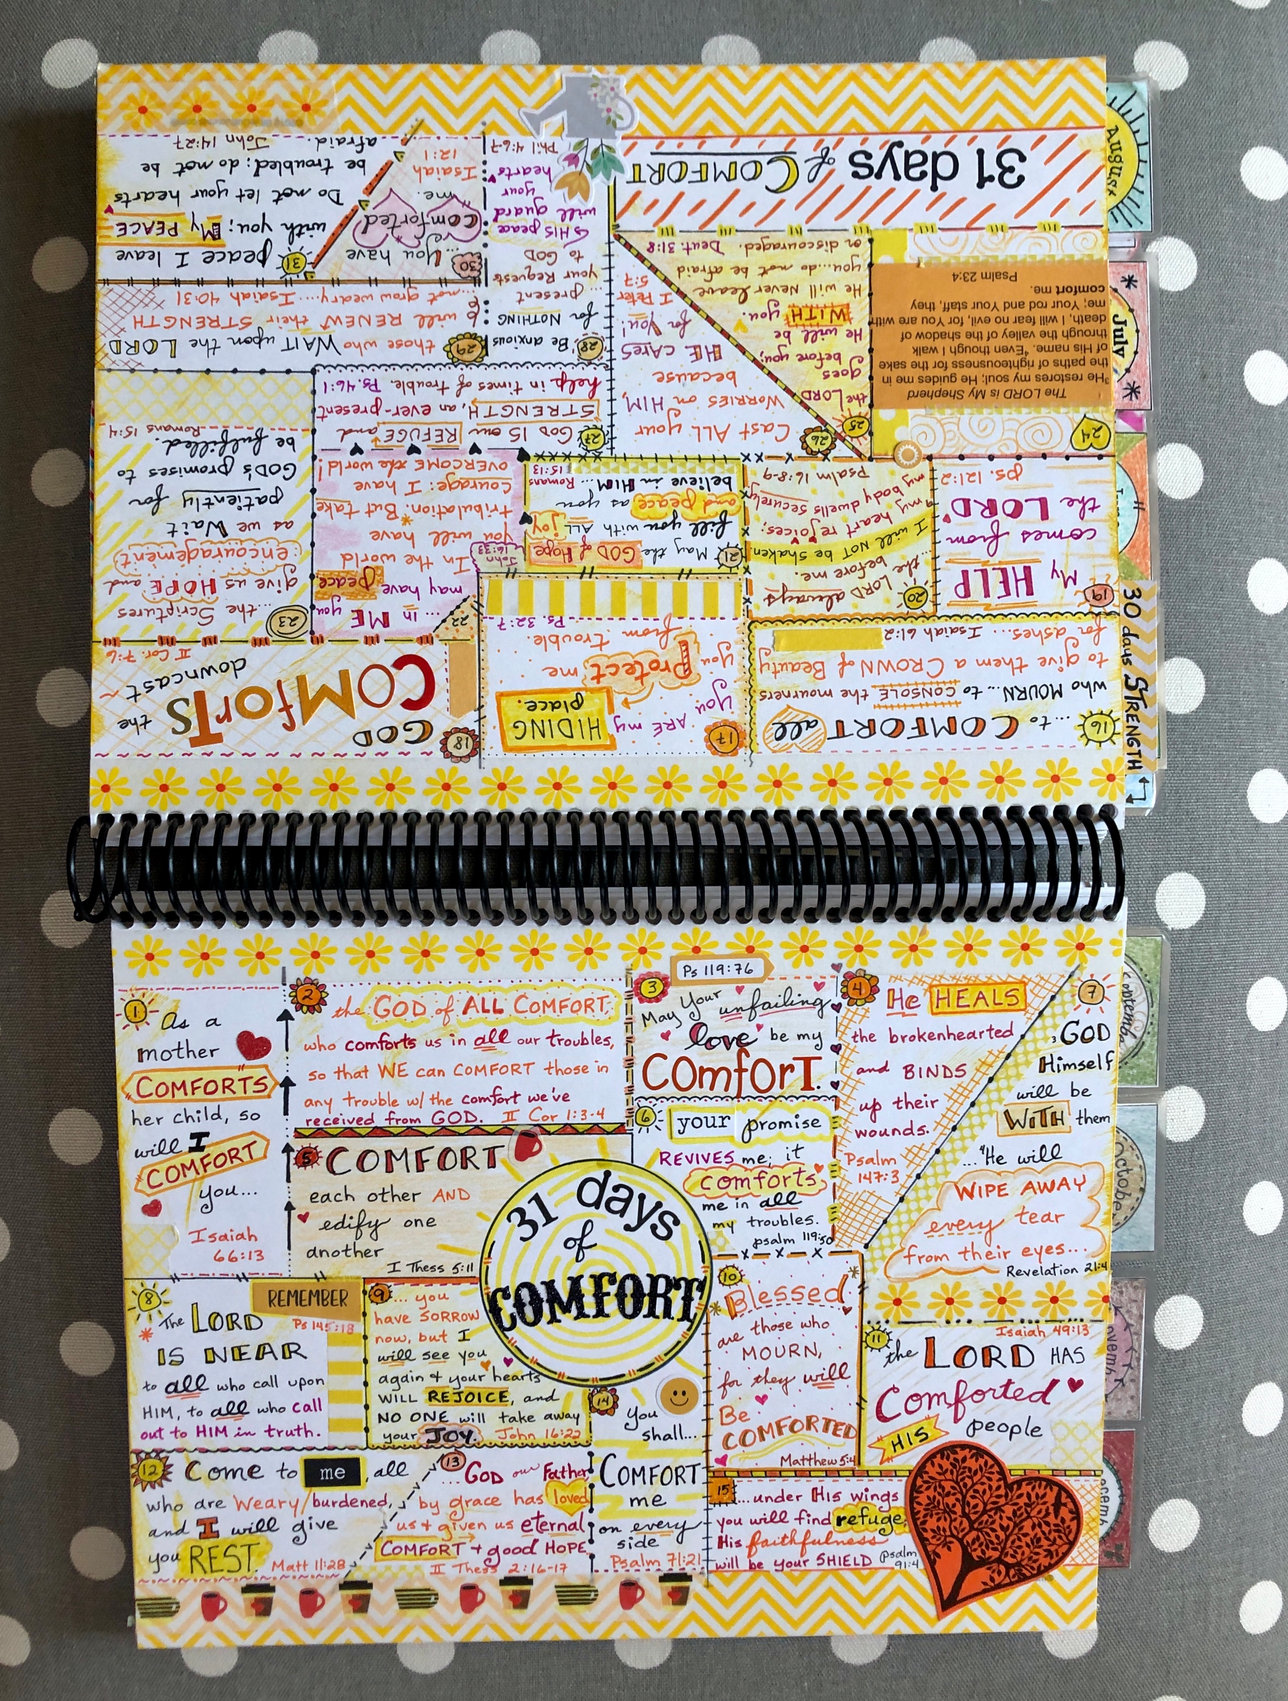 1
As a
mother
COMFORTS
her child, so
will I
COMFORT
you...
Isaiah
66:13
2
the GOD of ALL COMFORT,
who comforts us in all our troubles,
so that WE can COMFORT those in
any trouble w/ the comfort we've
received from GOD. II Cor 1:3-4
3
Ps 119:76
May Your unfailing
love be my
COMFORT.
4
He HEALS
the brokenhearted
and BINDS
up their
wounds.
Psalm
147:3
5
COMFORT
each other AND
edify one
another
I Thess 5:11
31 days
of
COMFORT
6
your promise
REVIVES me; it
comforts
me in all
my troubles.
psalm 119:50
7
GOD
Himself
will be
WITH them
..."He will
WIPE AWAY
every tear
from their eyes...
Revelation 21:4
8
REMEMBER
The LORD
Ps 145:18
IS NEAR
to all who call upon
HIM, to all who call
out to HIM in truth.
9
... you
have SORROW
now, but I
will see you
again & your hearts
WILL REJOICE, and
NO ONE will take away
your JOY. John 16:22
10
Blessed
are those who
MOURN,
for they will
Be
COMFORTED
Matthew 5:4
11
Isaiah 49:13
the LORD HAS
Comforted
HIS people
12
Come to me, all
who are Weary/burdened,
and I will give
you REST. Matt 11:28
13
...GOD our Father
by grace has loved
us & given us eternal
COMFORT & good HOPE
II Thess 2:16-17
14
You
shall...
COMFORT
me
on every
side
Psalm 71:21
15
...under His wings
you will find refuge,
His faithfulness
will be your SHIELD Psalm
91:4
16
... to COMFORT all
who MOURN ... to CONSOLE the mourners
to give them a CROWN of Beauty
for ashes... Isaiah 61:2
17
You ARE my HIDING
place.
you Protect me
from trouble.
Ps. 32:7
18
GOD
COMforTS
the downcast ~
II Cor. 7:6
19
My HELP
comes from
the LORD.
ps. 121:2
20
the LORD always
before me.
I will NOT be shaken.
my heart rejoices;
my body dwells securely.
Psalm 16:8-9
21
May the GOD of Hope
fill you with ALL joy
and peace as you
believe in HIM
Romans
15:13
22
... in ME you
may have peace
In the world
you will have
tribulation. But take
Courage: I have
OVERCOME the world!
John
16:33
23
...the Scriptures
give us HOPE and
encouragement
as we Wait
patiently for
GOD's promises to
be fulfilled.
Romans 15:4
24
The LORD is My Shepherd
³He restores my soul; He guides me in
the paths of righteousness for the sake
of His name. ⁴Even though I walk
through the valley of the shadow of
death, I will fear no evil, for You are with
me; Your rod and Your staff, they
comfort me.
Psalm 23:4
25
the LORD
goes
before you;
He will be
WITH you.
He will Never leave
you... do not be afraid
or discouraged. Deut 31:8
26
Cast ALL your
WORRIES on HIM,
because
HE CARES
for You!
I Peter
5:7
27
GOD IS our REFUGE and
STRENGTH, an ever-present
help in times of trouble. Ps 46:1
28
Be anxious
for NOTHING
... present
your Requests
to GOD
& HIS peace
will guard
your
hearts
Phil 4:6-7
29
those who WAIT upon the LORD
will RENEW their STRENGTH
...not grow weary.... Isaiah 40:31
30
... You have
comforted
me.
Isaiah
12:1
31
peace I leave
with you; My PEACE
Do not let your hearts
be troubled; do not be
afraid. John 14:27
31 days of COMFORT
August
July
30 days STRENGTH